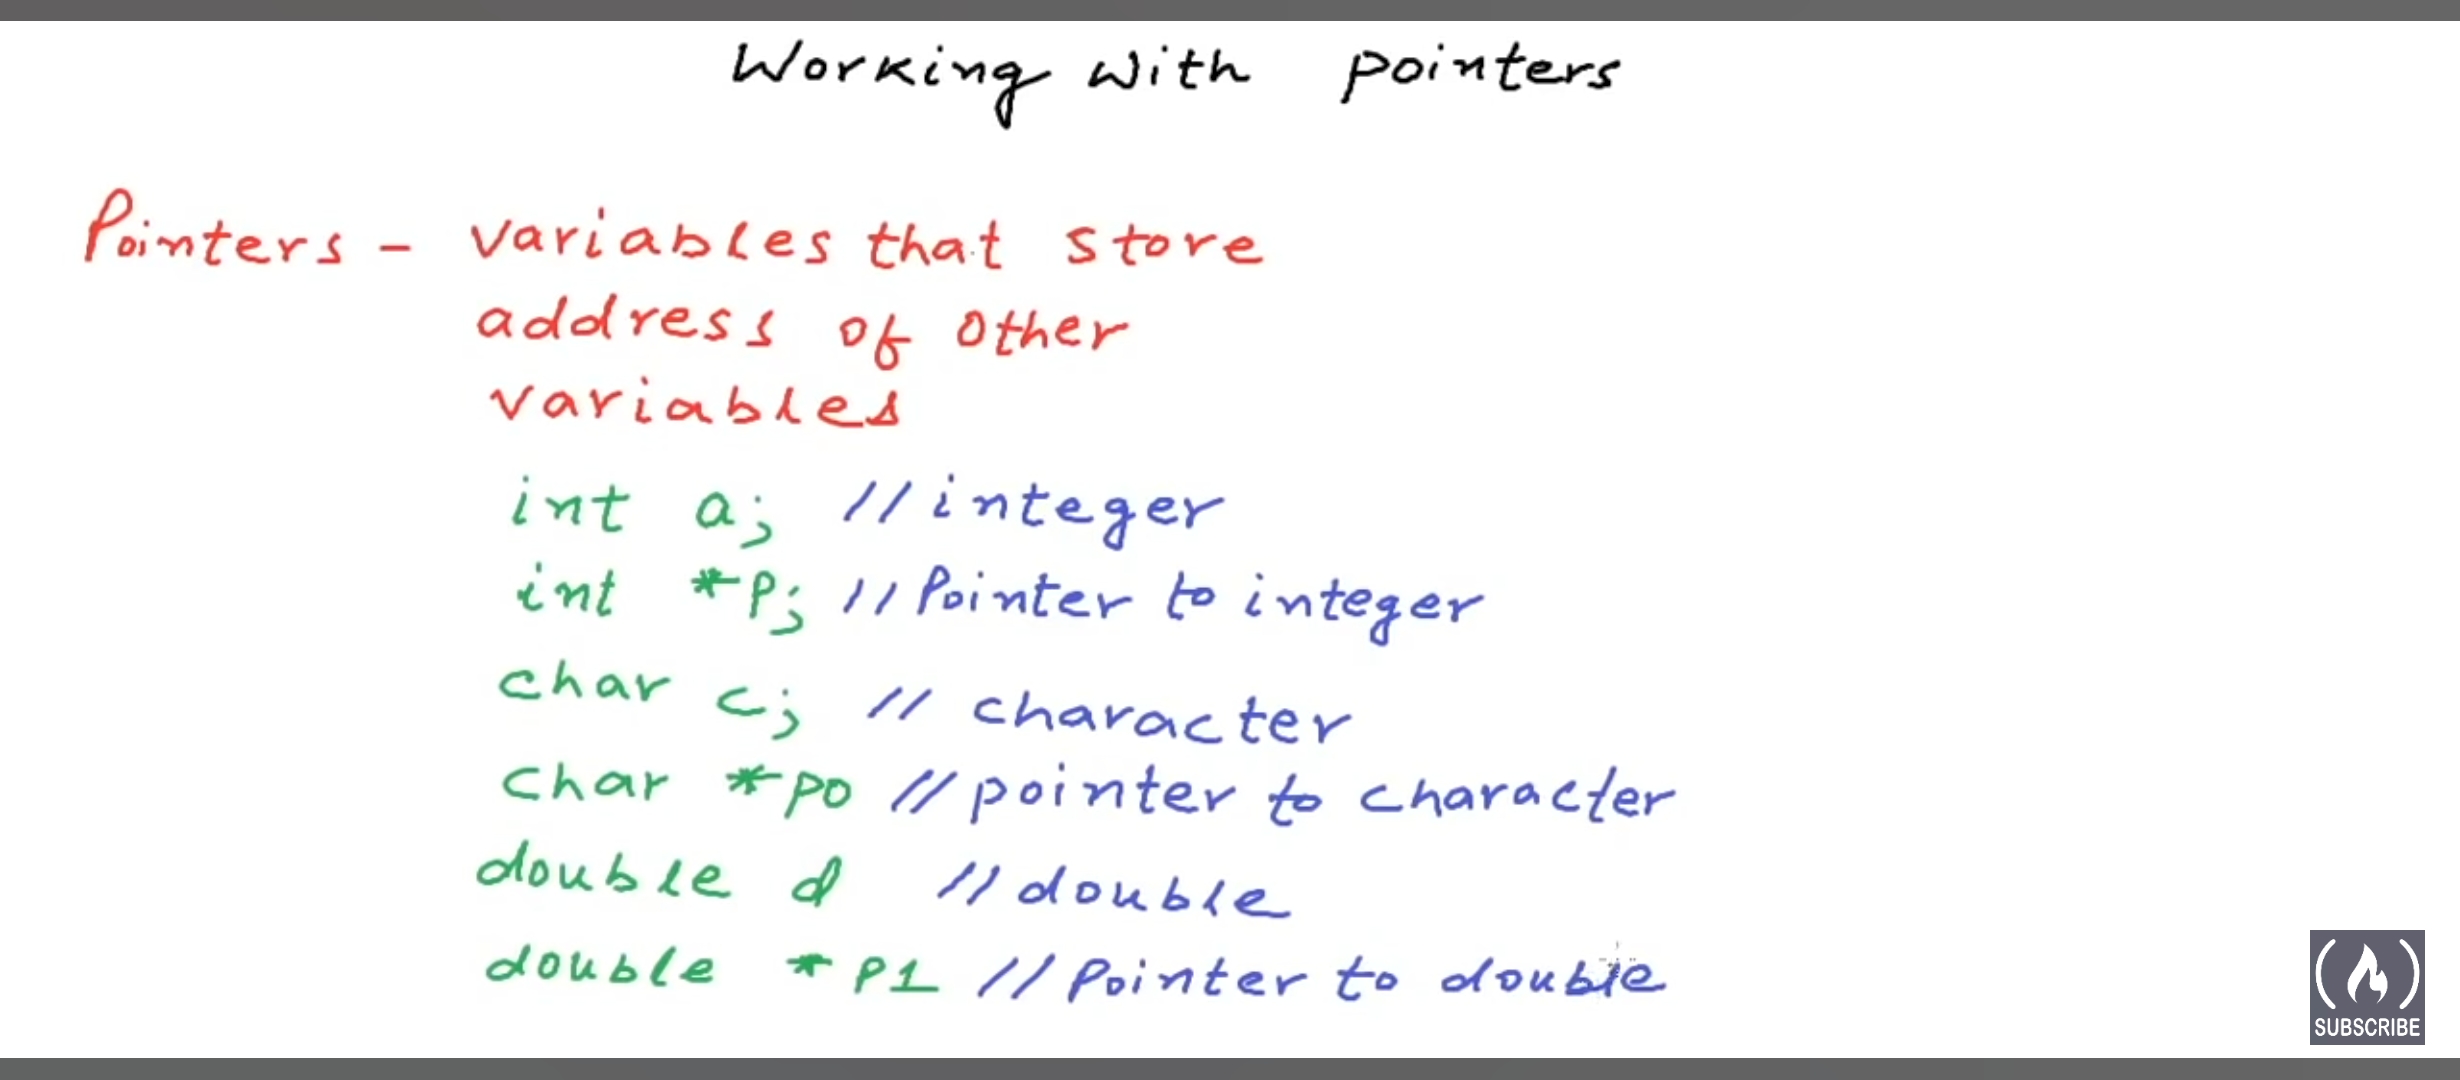 Working with pointers
Pointers - variables that store
address of other
variables
int a; //integer
int *P; //Pointer to integer
char c; // character
char *p0 //pointer to character
double d //double
double *P1 //Pointer to double
SUBSCRIBE